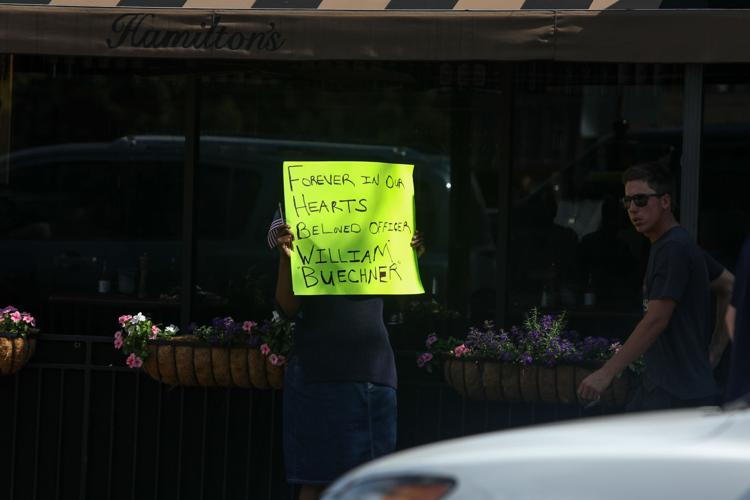 Hamilton's
FOREVER IN OUR
HEARTS
BELOVED OFFICER
WILLIAM
"BUECHNER"